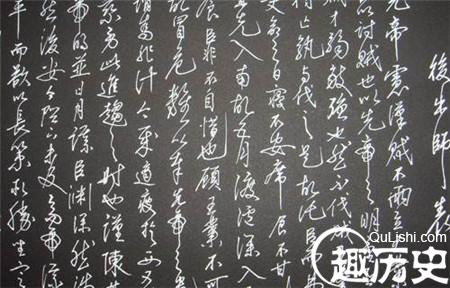 後出師表
先帝慮漢賊不兩立
以討賊也以先帝之明
賊才弱敵強也然不伐賊
待亡孰與伐之是故託臣
受命之日寢不安席食不甘
宜先入南故五月渡瀘深入
食臣非不自惜也顧王業不可
故冒危難以奉先帝之
謂為非計今賊適疲於西又
乘勞此進趨之時也謹陳其
帝明並日月謀臣淵深然涉
然後安今陛下未及高帝謀
平而欲以長策取勝坐定
QuLishi.com
趣历史